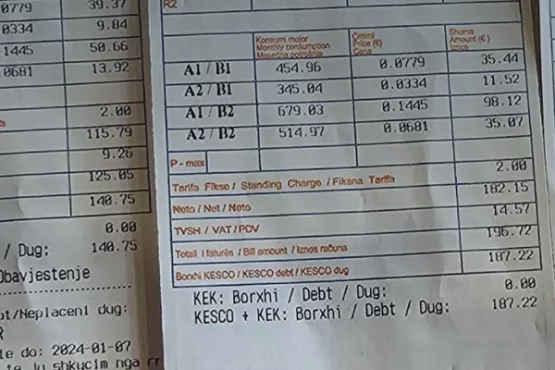 0779 39.37
0334 9.84
1445 50.66
.0681 13.92
2.00
115.79
9.26
125.05
140.75
0.00
/ Dug: 140.75
Obavjestenje
bt/Neplaceni dug:
te do: 2024-01-07
R2
Konsumi mujor Çmimi Shuma
Monthly consumption Price (€) Amount (€)
Mesečna potrošnja Cena Iznos
A1 / B1 454.96 0.0779 35.44
A2 / B1 345.04 0.0334 11.52
A1 / B2 679.03 0.1445 98.12
A2 / B2 514.97 0.0681 35.07
P - max
Tarifa Fikse / Standing Charge / Fiksna Tarifa 2.00
Neto / Net / Neto 182.15
TVSH / VAT / PDV 14.57
Totali i faturës / Bill amount / Iznos računa 196.72
Borxhi KESCO / KESCO debt / KESCO dug 187.22
KEK: Borxhi / Debt / Dug: 0.00
KESCO + KEK: Borxhi / Debt / Dug: 187.22